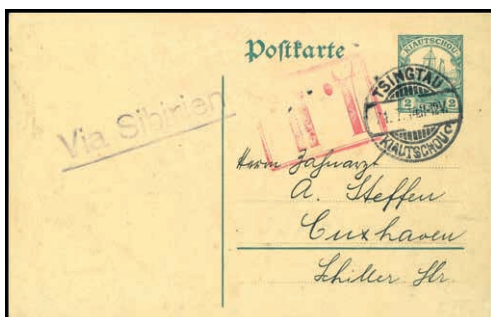 Postkarte
KIAUTSCHOU
2 2
TSINGTAU
KIAUTSCHOU
Via Sibirien
Herrn Zahnarzt
A. Steffen
Cuxhaven
Schiller Str.